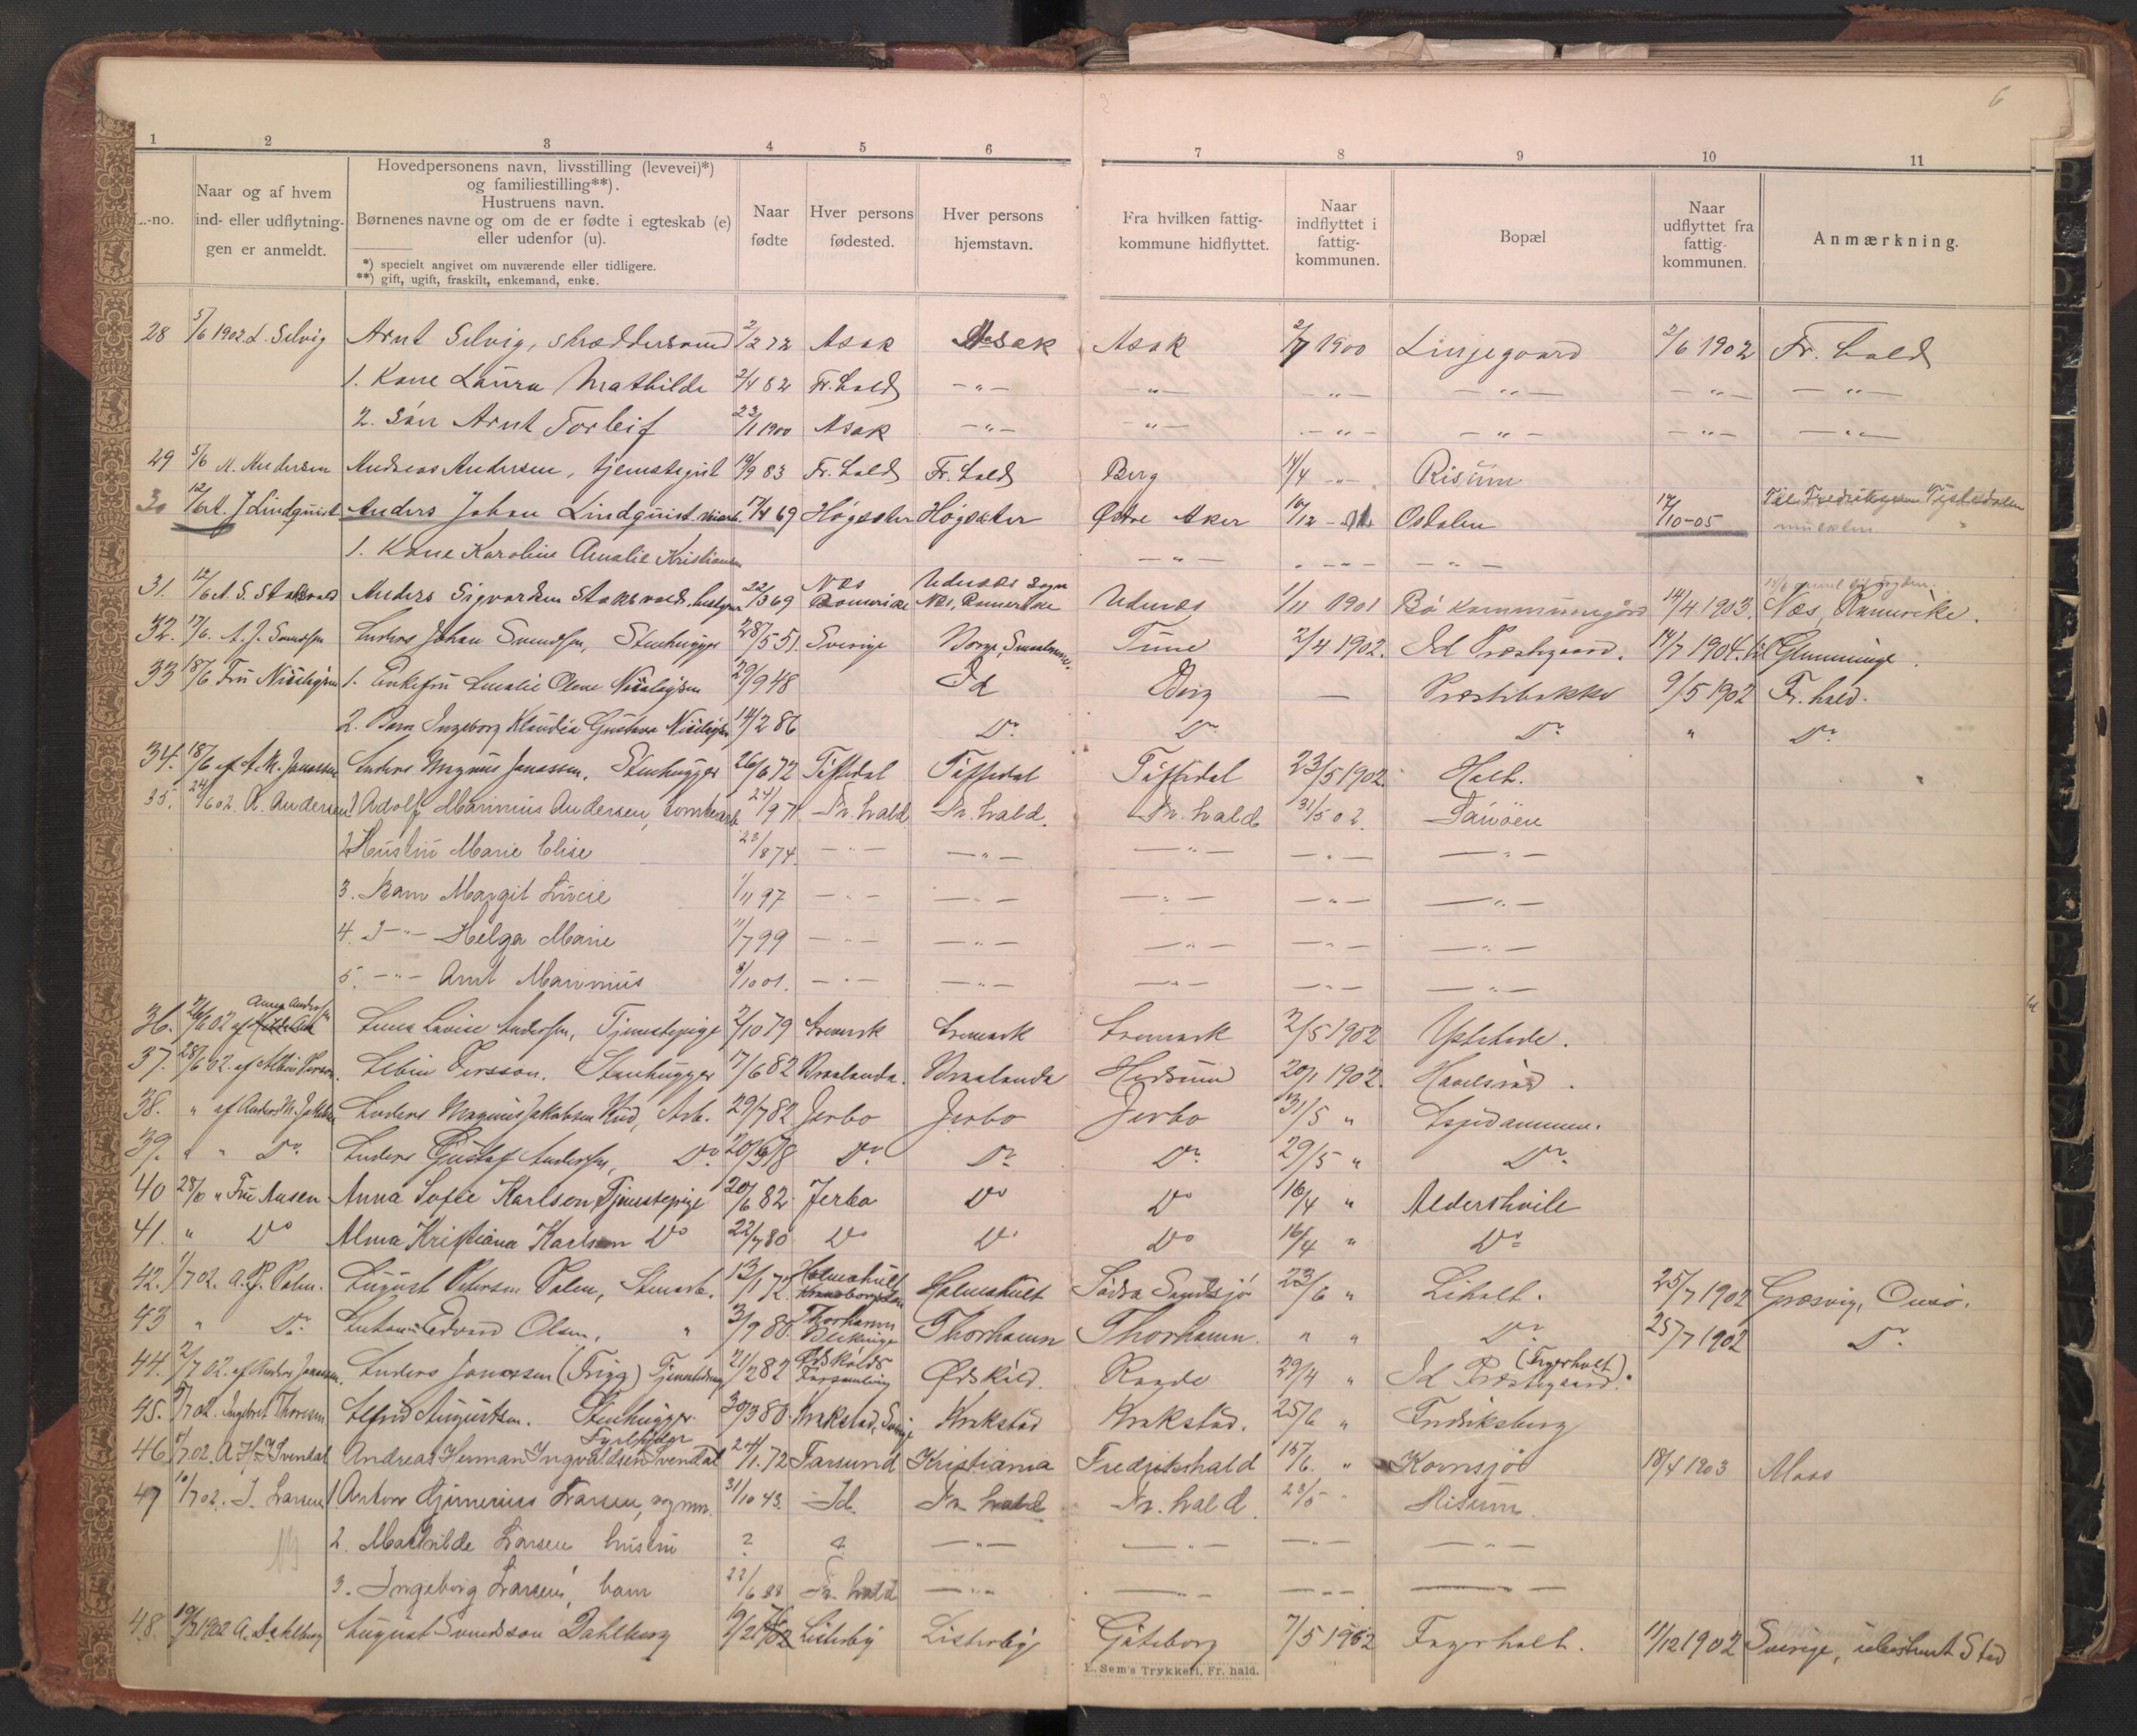 6
1 2 3 4 5 6 7 8 9 10 11
L.-no.
Naar og af hvem
ind- eller udflytnin-
gen er anmeldt.
Hovedpersonens navn, livsstilling (levevei)*)
og familiestilling**).
Hustruens navn.
Børnenes navne og om de er fødte i egteskab (e)
eller udenfor (u).
*) specielt angivet om nuværende eller tidligere.
**) gift, ugift, fraskilt, enkemand, enke.
Naar
fødte
Hver persons
fødested.
Hver persons
hjemstavn.
Fra hvilken fattig-
kommune hidflyttet.
Naar
indflyttet i
fattig-
kommunen.
Bopæl
Naar
udflyttet fra
fattig-
kommunen.
Anmærkning.
28 5/6 1902 L. Selvig Arnt Selvig, skræddersvend 2/2 72 Asak Asak Asak 2/7 1900 Linjegaard 2/6 1902 Fr. hald
1. Kone Laura Mathilde 2/4 82 Fr. hald -"- -"- -"- -"- -"- -"-
2. Søn Arnt Torleif 23/11 1900 Asak -"- -"- -"- -"- -"- -"-
29 5/6 A. Andersen Andreas Andersen, tjenstgut 19/9 83 Fr. hald Fr. hald Berg 14/4 -"- Risum
30 12/6 A. J Lindquist Anders Johan Lindquist 17/4 69 Høgsäter Høgsäter Østre Aker 10/12 - 01 Osdalen 14/10-05 Tistedalen
1. Kone Karoline Amalie Kristiansen -"- -"- -"-
31. 12/6 A. S. Staksvold Anders Sigvardsen Staksvold, 22/3 69 Næs Romerike Udenæs Sogn Næs, Romerike Udenæs 1/11 1901 Bø kommunegård 14/4 1903. Næs, Romerike.
32. 17/6. A. J. Svendsen Anders Johan Svendsen, Stenhugger 28/5 51. Sverige Borge, Smaalenene. Tune 2/4 1902. Id Præstegaard. 14/7 1904. til Glemminge.
33 18/6 Fru Nicolaysen 1. Enkefru Amalie Olene Nicolaysen 29/9 48 Id Berg — Præstebakke 9/5 1902 Fr. hald.
2. Barn Ingeborg Klaudia Gustava Nicolaysen 14/2 86 Do. Do. Do. " Do.
34. 18/6 af A. M. Janassen Anders Magnus Janassen, Stenhugger 26/6 72 Tistedal Tistedal Tistedal 23/5 1902. Holt.
35. 24/6 02. A. Andersen 1 Adolf Marinius Andersen, tomtearb. 24/9 71 Fr. hald Fr. hald. Fr. hald 31/5 02. Sauøen
2 Hustru Marie Elise 23/8 74 -"- -"- -"- -"- -"-
3. Barn Margit Lucie 1/11 97 -"- -"- -"- -"- -"-
4. -"- Helga Marie 11/7 99 -"- -"- -"- -"- -"-
5. -"- Arnt Marinius 8/10 01. -"- -"- -"- -"- -"-
36. 26/6 02 af Anna Andersen Anna Lovise Andersen, Tjenestepige 2/10 79 Aremark Aremark Aremark 2/5 1902 Ystehede.
37. 28/6 02. af Albin Persson. Albin Persson. Stenhugger 17/6 82 Braalanda. Braalanda Hedrum 20/1 1902.
38. " af Anders M. Jakobsen Anders Magnus Jakobsen Hud, Arb. 29/7 82 Jerbo Jerbo Jerbo 31/5 " Aspedammen.
39. " " Do. Anders Gustaf Andersen, Do. Do. Do. Do. 29/5 " Do.
40 28/6 " Fru Ausen Anna Sofie Karlson Tjenestepige 20/6 82. Jerbo Do Do 16/4 " Aldershvile
41. " Do Alma Kristiana Karlson Do 22/7 80 Do Do Do 16/4 " Do
42. 1/7 02. A. P. Palm. August Petersen Palm, Stenarb. 13/1 72. Holmahult Holmahult Södra Sandsjö 23/6 " Liholt. 25/7 1902 Græsvig, Onsø.
43 " Do. Edvard Olsen, " 3/9 80. Thorhamn Blekinge Thorhamn Thorhamn. " " Do. 25/7 1902 Do.
44. 2/7 02. af Anders Janassen. Anders Janassen (Trigg) Tjenestedreng 21/2 82 Ødskölds Forsamling Ødsköld. Raade 29/4 " Id Præstegaard (Fagerholt).
45. 5/7 02. Ingebret Thoresen Alfred Augustsen. Stenhugger. 30/3 80. Krokstad, Sverige Krokstad Krokstad. 25/6 " Fredriksberg
46 7/7 02. A. H. I Svendal Andreas Herman Ingvaldsen Svendal Fyrbøder 24/1. 72 Farsund Kristiania Fredrikshald 15/6. " Kornsjø 18/4 1903 Moss
47 10/7 02. I. Larsen 1 Anton Hjimerius Larsen, 31/10 43. Id. Fr. hald Fr. hald. 23/5 - Risum.
2. Mathilde Larsen hustru ? ? -"- -"- -"- -"-
3. Ingeborg Larsen, barn 22/6 88 Fr. hald -"- -"- -"- -"-
48. 10/7 1902 A. Dahlberg August Svendsson Dahlberg Listerby Listerby Göteborg 7/5 1902 Fagerholt. 11/12 1902 Sverige, ubestemt Sted
E. Sem's Trykkeri, Fr. hald.